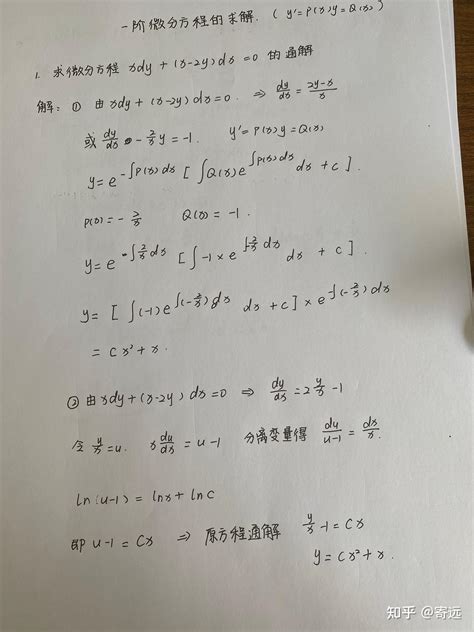 一阶微分方程的求解. ( y'=P(x)y=Q(x) )
1. 求微分方程 xdy + (x-2y)dx =0 的通解
解: ① 由 xdy + (x-2y)dx=0. ⇒ dy/dx = (2y-x)/x
或 dy/dx - 2/x y = -1. y'=P(x)y=Q(x)
y= e^{-∫P(x)dx} [ ∫Q(x)e^{∫P(x)dx} dx + c ].
p(x)= - 2/x Q(x)= -1.
y= e^{-∫2/x dx} [ ∫-1×e^{∫-2/x dx} dx + c ].
y= [ ∫(-1)e^{∫(-2/x)dx} dx +c ] × e^{-∫(-2/x)dx}
= Cx²+x.
② 由 xdy+(x-2y)dx=0 ⇒ dy/dx = 2y/x -1
令 y/x=u. x du/dx = u-1 分离变量得 du/(u-1) = dx/x.
ln(u-1) = lnx + lnC
即 u-1 = Cx ⇒ 原方程通解 y/x -1 = Cx
y= Cx²+x.
知乎 @寄远